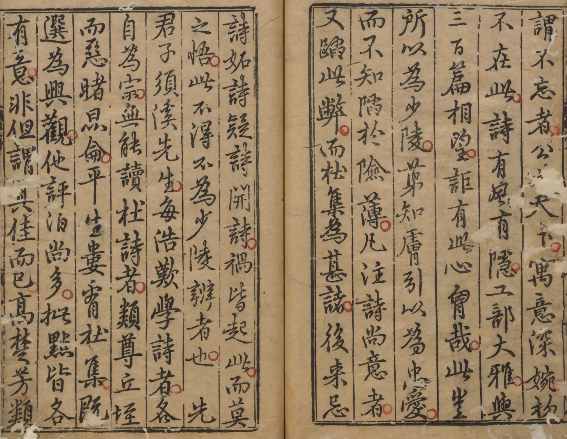 謂不忘者公天下寓意深婉初
不在此詩有風有隱工部大雅與
三百篇相望詎有此心胷哉此豈
所以為少陵第知膚引以為忠愛
而不知陷於險薄凡注詩尚意者
又蹈此弊而杜集為甚諸後来忌
詩妬詩疑詩開詩禍皆起此而莫
之悟此不得不為少陵辨者也 先
君子須溪先生每浩歎學詩者各
自為宗無能讀杜詩者類尊丘垤
而惡睹昆侖平生婁看杜集既
選為興觀他評泊尚多批點皆各
有意非但謂其佳而已高楚芳類